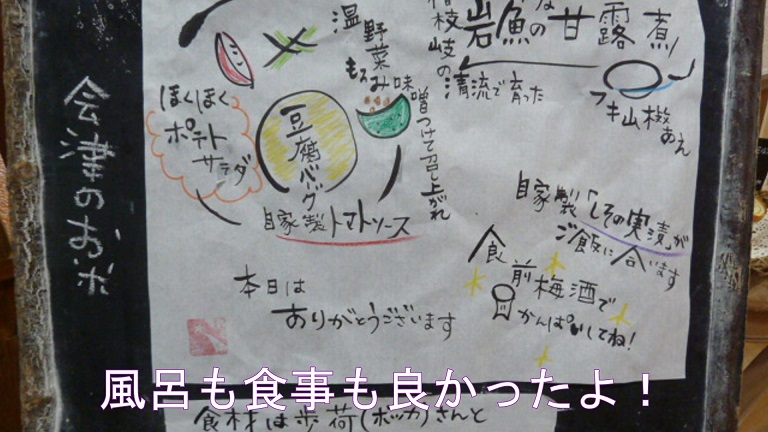 岩魚の甘露煮
桧枝岐の清流で育った
フキ山椒あえ
温野菜
もろみ味噌つけて召し上がれ
ほくほく
ポテト
サラダ
豆腐バーグ
自家製トマトソース
自家製「しその実漬」が
ご飯に合います
食前梅酒で
かんぱいしてね!
本日は
ありがとうございます
会津のお米
風呂も食事も良かったよ!
食材は歩荷(ボッカ)さんと